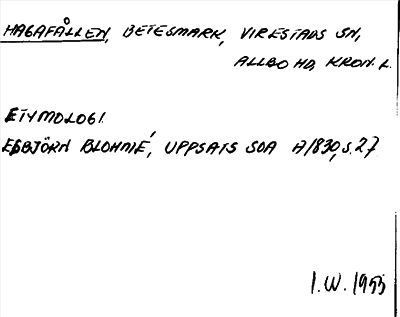 HAGAFÅLLEN, BETESMARK, VIRESTADS SN,
ALLBO HD, KRON. L.
ETYMOLOGI.
ESBJÖRN BLOHMÉ, UPPSATS SOA A/830, S. 27
I.W. 1955